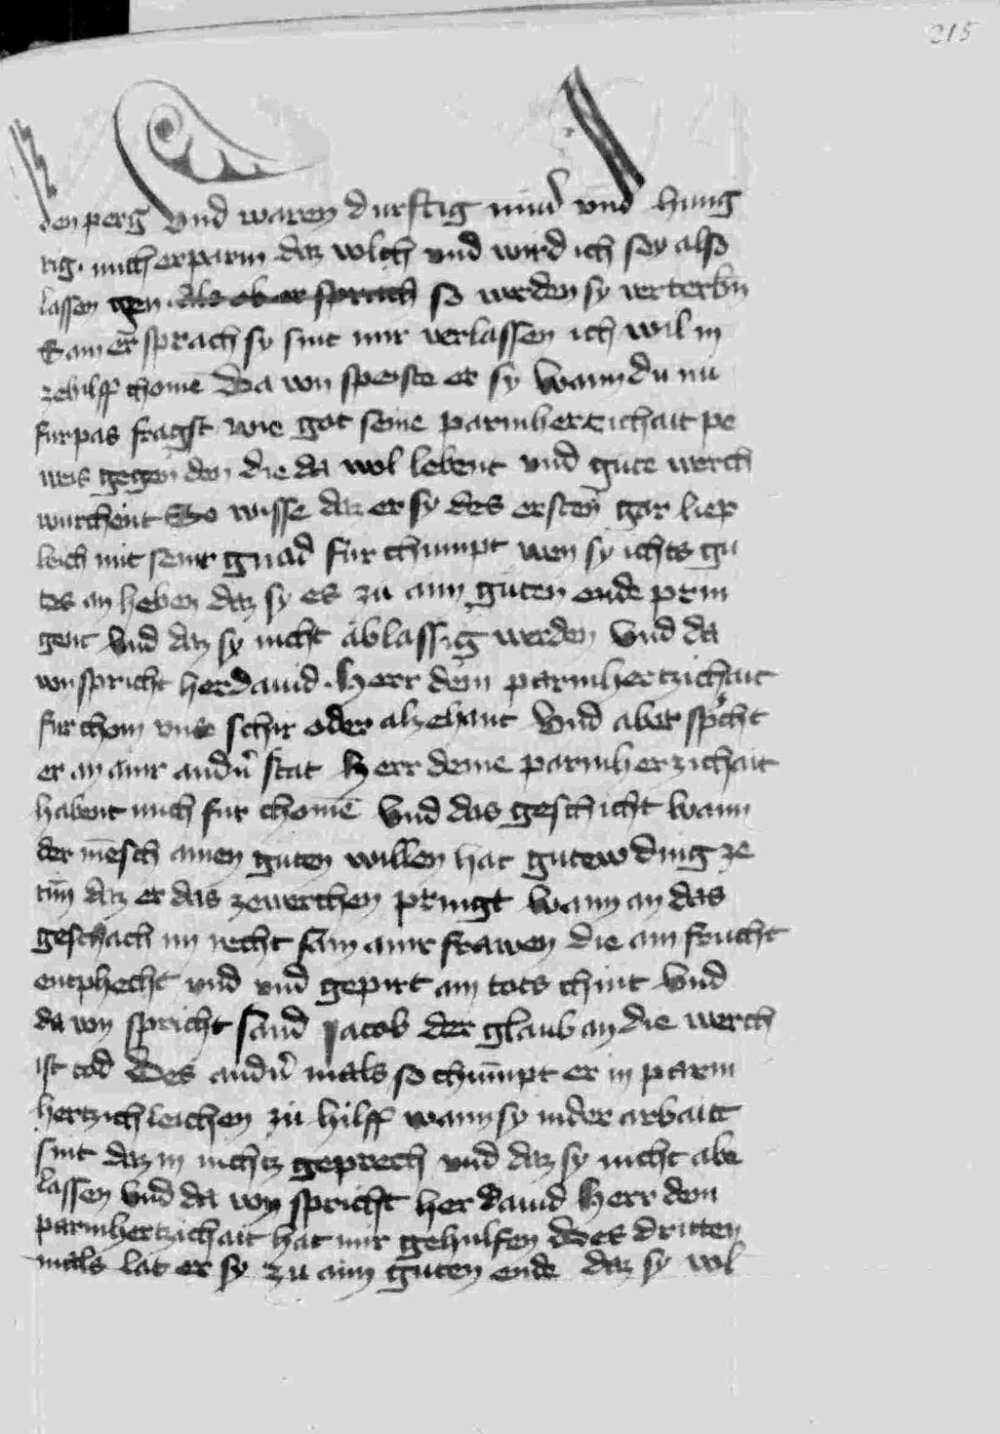 215
den perg Und waren durstig müd und hung
rig. mich erparm daz volch und wird ich sey also
lassen gen als ob er sprach so werden sy verterbn̄
er sprach sy sint mir verlassen ich wil in
zehilff chomē Da von speiste er sy Wann du nu
furpas fragst wie got seine parmhertzichait pe
weis gegen den die da wol lebent und gute werch
wurchent So wisse daz er sy des ersten gar liep
leich mit seinr gnad fur chumpt wen sy ichts gu
tes an heben daz sy es zu aim guten ende prin
gent Und daz sy nicht ablassig werden Und da
von spricht her David. Herr dein parmhertzichait
fur chom uns schir oder alzehant Und aber spͥcht
er an ainr andn̄ stat Herr deine parmherzichait
habent mich fur chomē Und das geschicht Wann
der mēsch ainen guten willen hat gutew ding ze
tun daz er das zewerchen pringt Wann an das
geschach im recht sam ainr frawen die ain frucht
entphecht und und gepirt ain tots chint Und
da von spricht sand Jacob der glaub an die werch
ist tod Des andn̄ mals so chumpt er in parm
hertzichleichen zu hilff wann sy in der arbait
sint daz in nichtz geprech und daz sy nicht abe
lassen Und da von spricht her David Herr dein
parmhertzichait hat mir geholfen Des dritten
mals lat er sy zu aim guten ende daz sy wol